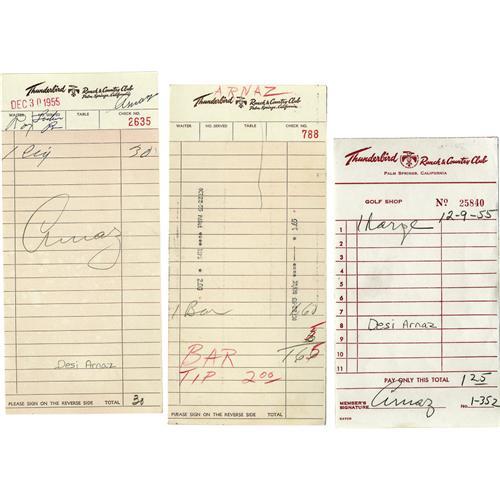 Thunderbird Ranch & Country Club
Palm Springs, California
DEC 30 1955
Arnaz
WAITER NO. SERVED TABLE CHECK NO.
2635
1 Cig 30
Arnaz
Desi Arnaz
PLEASE SIGN ON THE REVERSE SIDE TOTAL 30
ARNAZ
Thunderbird Ranch & Country Club
Palm Springs, California
WAITER NO. SERVED TABLE CHECK NO.
788
1 Bar
BAR
TIP 2.00
PLEASE SIGN ON THE REVERSE SIDE TOTAL
Thunderbird Ranch & Country Club
PALM SPRINGS, CALIFORNIA
GOLF SHOP No 25840
12-9-55
1
2
3
4
5
6
7
8 Desi Arnaz
9
10
11
PAY ONLY THIS TOTAL 1 25
MEMBER'S SIGNATURE Arnaz No. 1-352